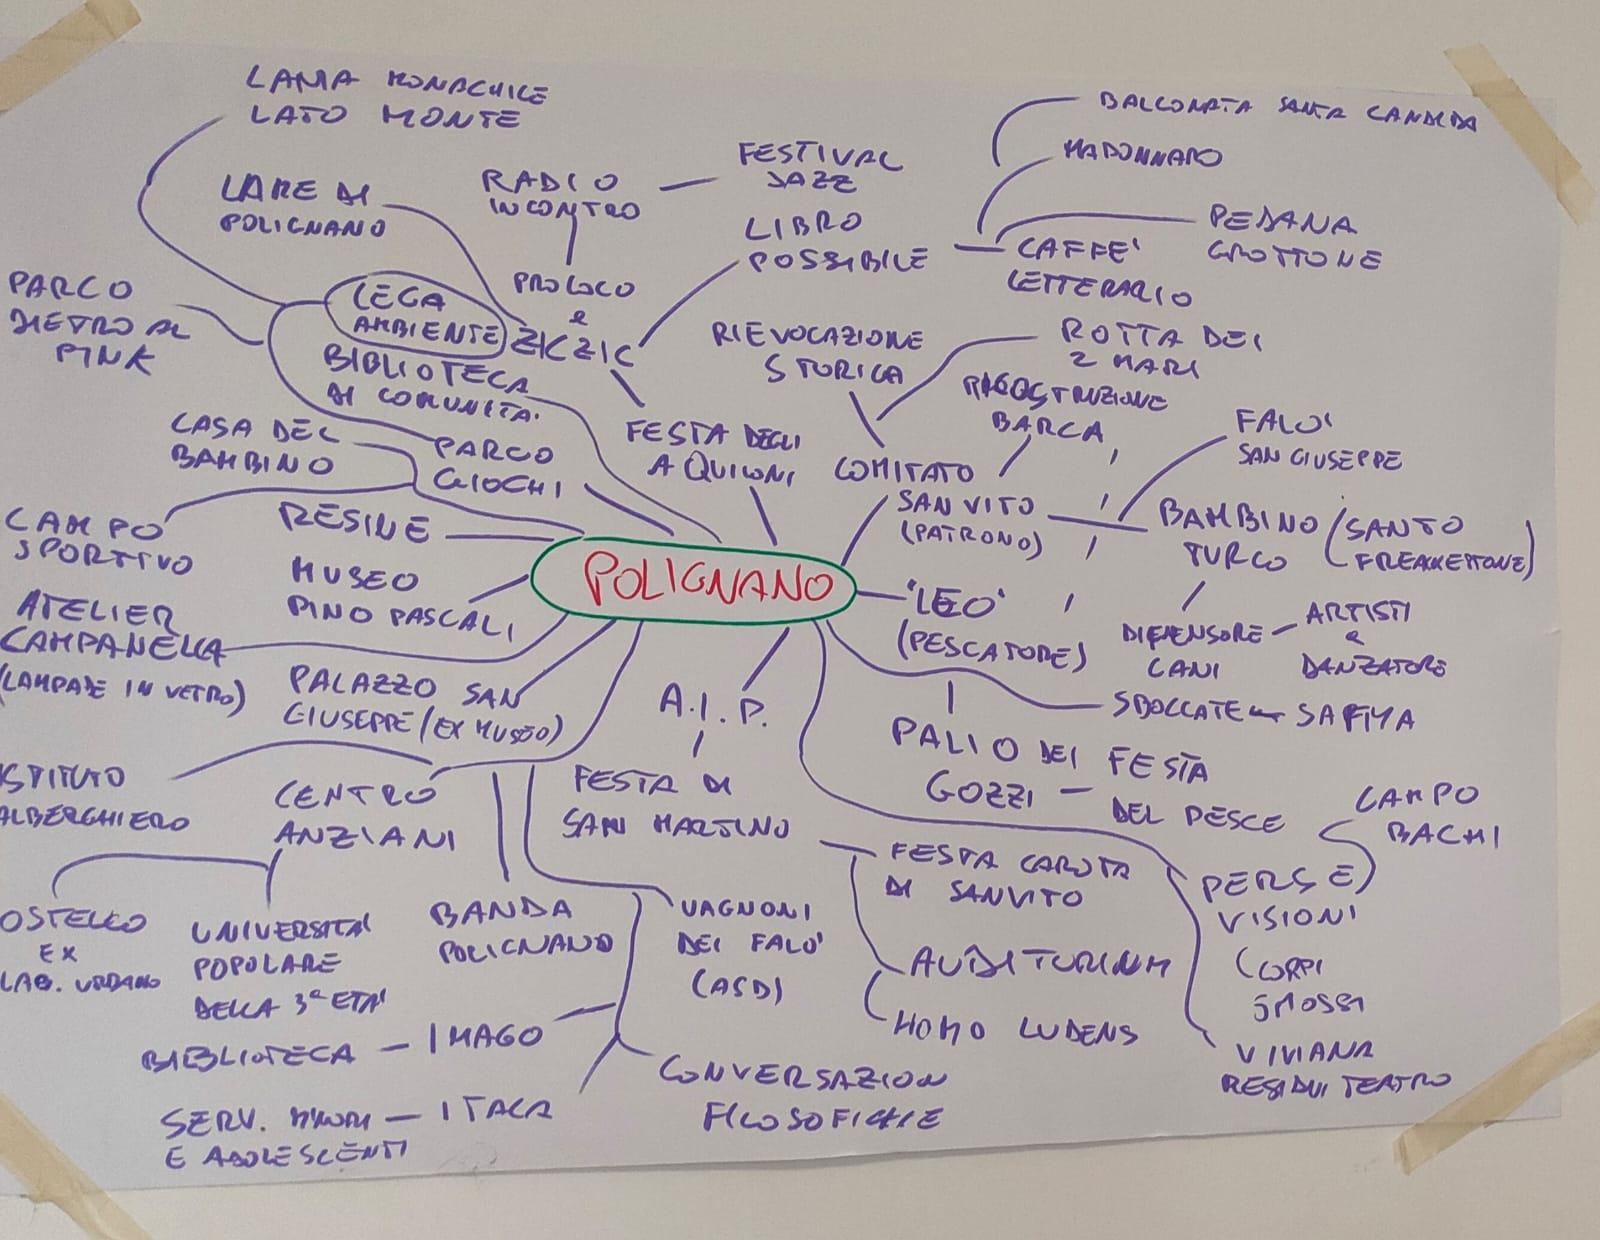 LAMA MONACHILE
LATO MONTE
LARE DI
POLIGNANO
RADIO
INCONTRO
FESTIVAL
JAZZ
LIBRO
POSSIBILE
BALCONATA SANTA CANDIDA
MADONNARO
PEDANA
GROTTONE
CAFFE'
LETTERARIO
PARCO
DIETRO AL
PINK
LEGA
AMBIENTE
PROLOCO
e
ZICZIC
BIBLIOTECA
DI COMUNITA'
RIEVOCAZIONE
STORICA
ROTTA DEI
2 MARI
BARCA
CASA DEL
BAMBINO
PARCO
GIOCHI
FESTA DEGLI
AQUILONI
COMITATO
SAN VITO
(PATRONO)
FALO'
SAN GIUSEPPE
BAMBINO
TURCO
(SANTO
CAMPO
SPORTIVO
RESINE
MUSEO
PINO PASCALI
POLIGNANO
'LEO'
(PESCATORE)
DIFENSORE
CANI
ARTISTI
e
DANZATORE
ATELIER
CAMPANELLA
(LAMPADE IN VETRO)
PALAZZO SAN
GIUSEPPE/(EX MUSEO)
A.I.P.
SBOCCATE
SAFIYA
PALIO DEI
GOZZI
FESTA
DEL PESCE
ISTITUTO
ALBERGHIERO
CENTRO
ANZIANI
FESTA DI
SAN MARTINO
FESTA CAROTA
DI SANVITO
CAMPO
BACHI
PERSE
VISIONI
CORPI
SMOSSI
VIVIANA
RESIDUI TEATRO
OSTELLO
EX
LAB. URBANO
UNIVERSITA'
POPOLARE
DELLA 3ª ETA'
BANDA
POLIGNANO
VAGNONI
DEI FALO'
(ASD)
AUDITURIUM
HOMO LUDENS
BIBLIOTECA
IMAGO
CONVERSAZIONI
FILOSOFICHE
SERV. MINORI
E ADOLESCENTI
ITACA